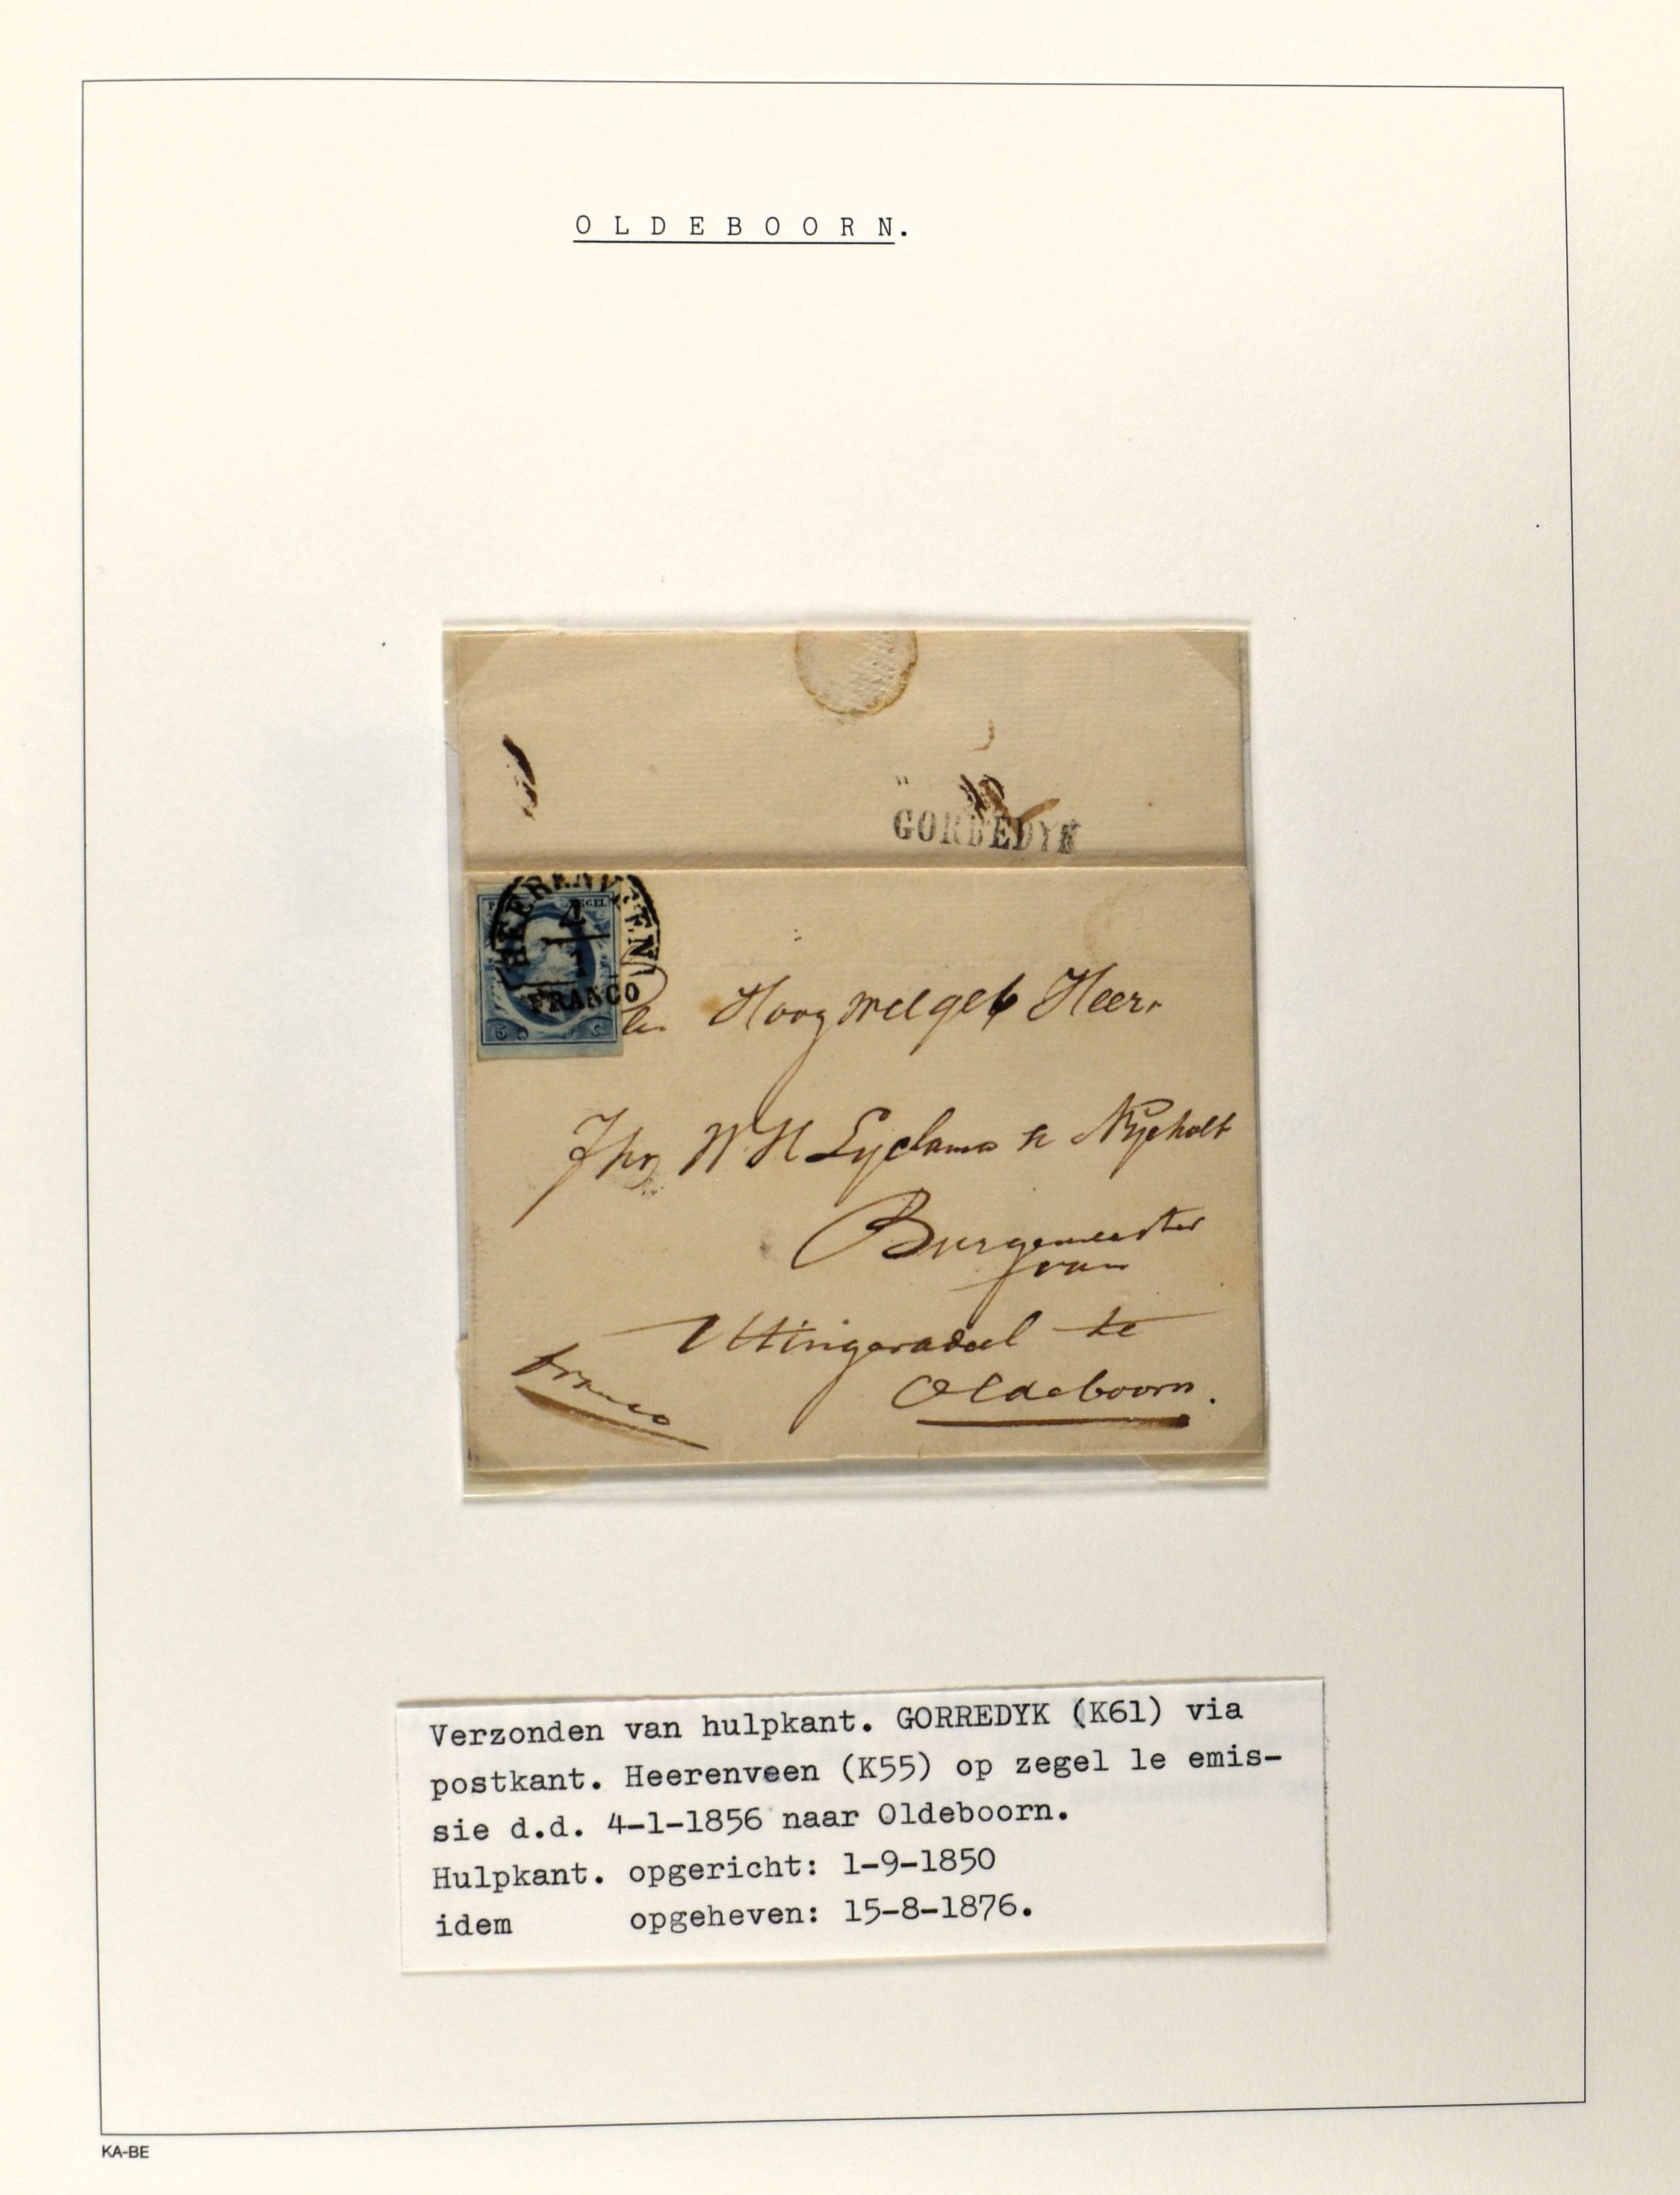 O L D E B O O R N.
GORREDYK
HEERENVEEN
4
1
FRANCO
5 C
Hoog Welgeb Heer
Jhr W H Lyclama à Nyeholt
Burgemeester
van
Uttingeradeel te
Oldeboorn.
franco
Verzonden van hulpkant. GORREDYK (K61) via
postkant. Heerenveen (K55) op zegel 1e emis-
sie d.d. 4-1-1856 naar Oldeboorn.
Hulpkant. opgericht: 1-9-1850
idem opgeheven: 15-8-1876.
KA-BE